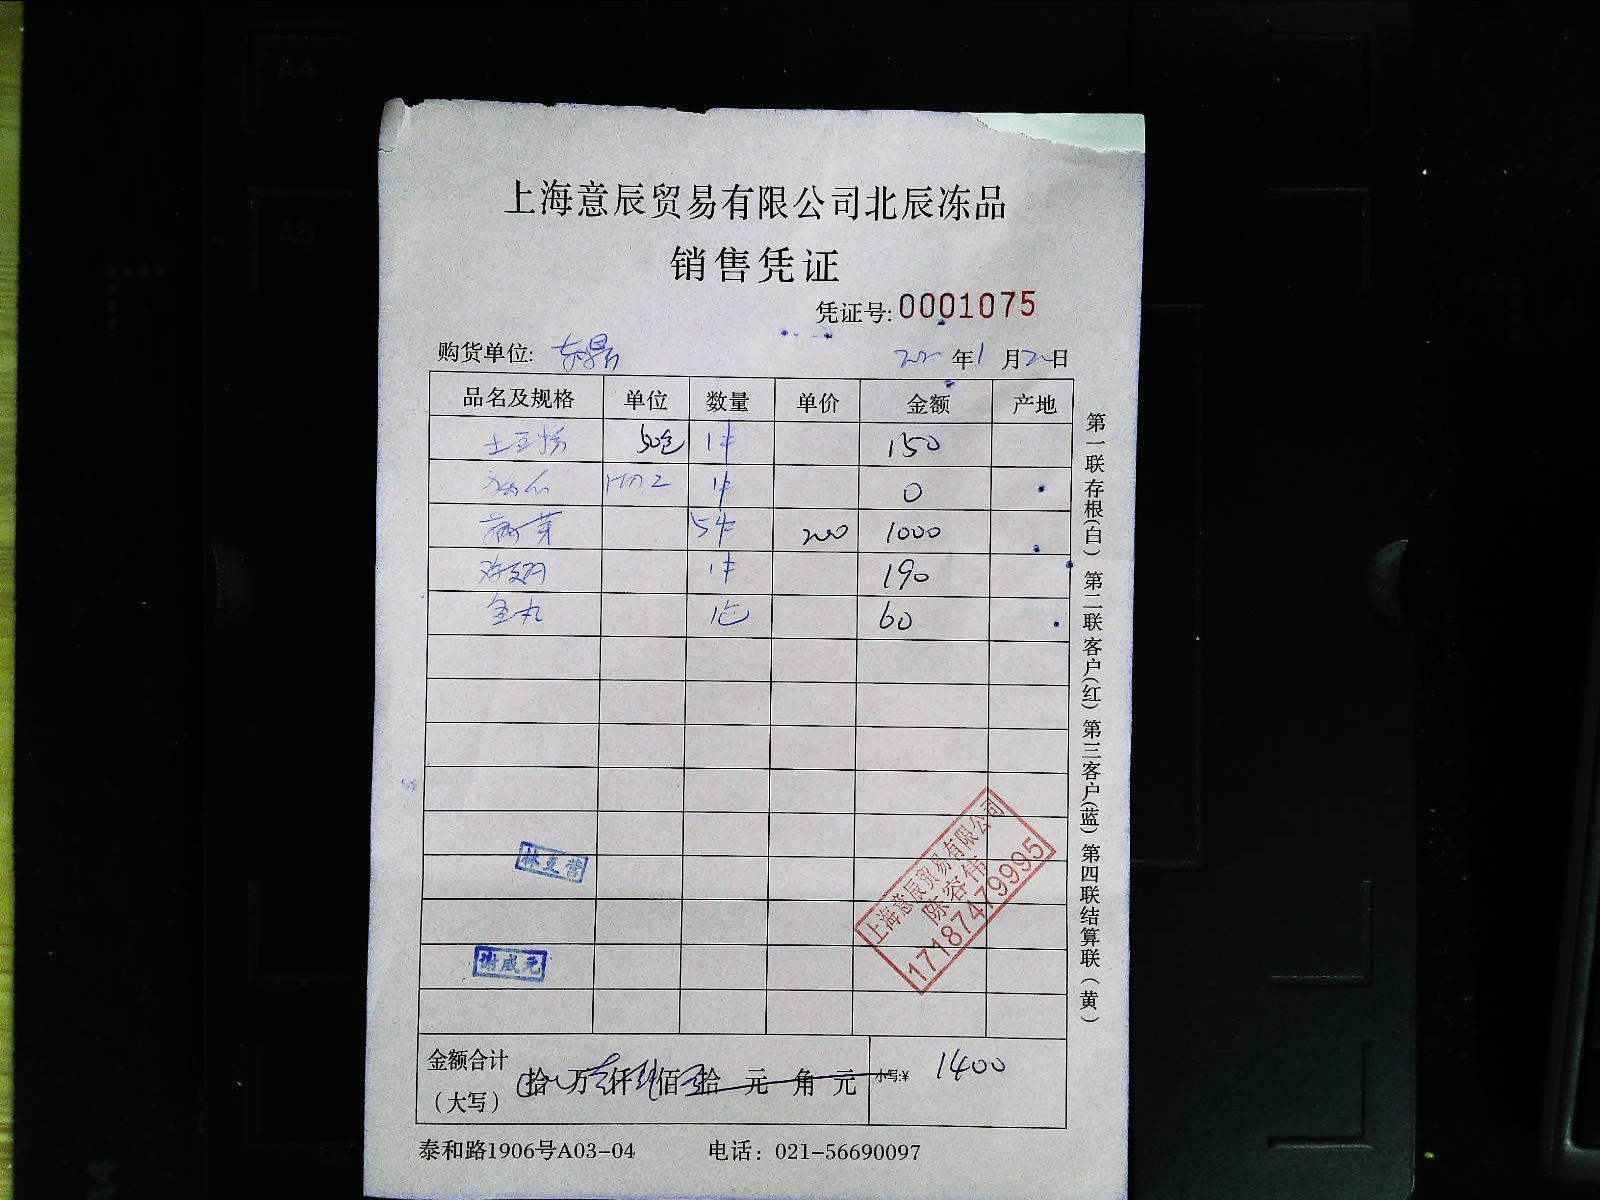 上海意辰贸易有限公司北辰冻品
销售凭证
凭证号:0001075
购货单位: 年1月20日
品名及规格 单位 数量 单价 金额 产地
土豆粉 50包 1件 150
1件 0
5件 200 1000
鸡翅 1件 190
1包 60
林
谢成元
上海意辰贸易有限公司
陈容伟
17187479995
金额合计
（大写） 拾 万 仟 佰 拾 元 角 元 小写:¥ 1400
泰和路1906号A03-04 电话：021-56690097
第一联存根(白) 第二联客户(红) 第三客户(蓝) 第四联结算联(黄)
A4
A5